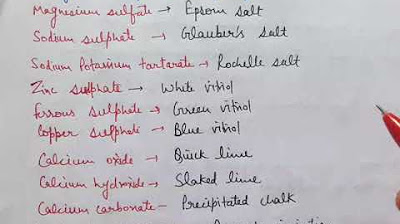 Magnesium sulfate → Epsom salt
Sodium sulphate → Glauber's salt
Sodium Potassium tartarate → Rochelle salt
Zinc sulphate → White vitriol
ferrous sulphate → Green vitriol
Copper sulphate → Blue vitriol
Calcium oxide → Quick lime
Calcium hydroxide → Slaked lime
Calcium carbonate — Precipitated chalk